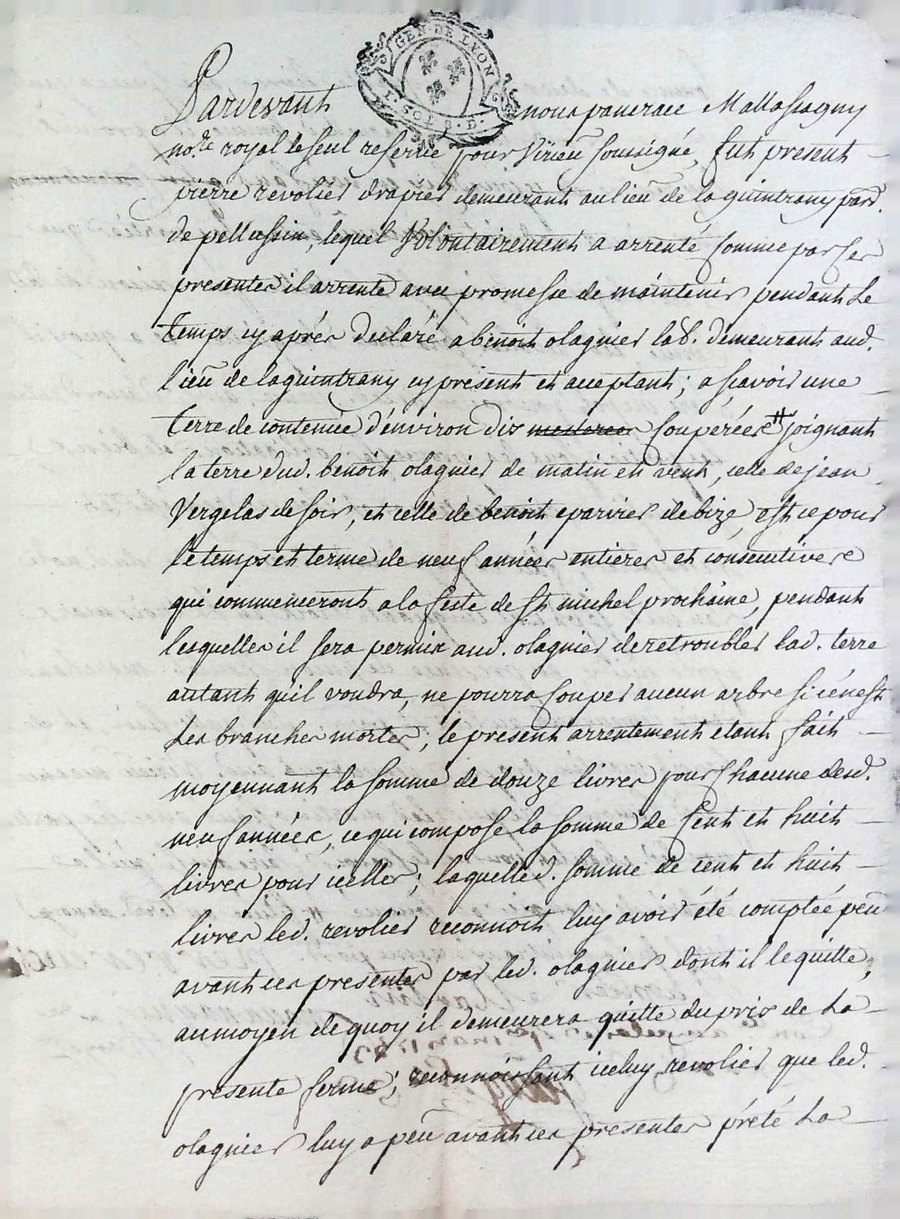 GEN DE LYON
1. SOL 8. D.
Pardevant nous pancrace Mallassagny
no.re royal le seul reservé pour Virieu soussigné, fut present
pierre revolier drapier demeurant au lieu de la guintrany par.
de pellussin, lequel Volontairement a arrenté comme par ses
presentes il arrente avec promesse de maintenir pendant le
temps cy après declaré a benoit olagnier lab. demeurant aud.
lieu de la guintrany cy present et acceptant; a sçavoir une
terre de contenue d'environ dix couperées # joignant
la terre dud. benoit olagnier de matin et vent, celle de jean
Vergelas de soir, et celle de benoit eparvier de bize, est ce pour
le temps et terme de neuf années entieres et consecutives
qui commenceront a la feste de st michel prochaine, pendant
lesquelles il sera permis aud. olagnier de retroubler lad. terre
autant qu'il voudra, ne pourra couper aucun arbre si cén'est
les branches mortes, le present arrentement etant fait
moyennant la somme de douze livres pour chacune desd.
neuf années, ce qui compose la somme de cent et huit
livres pour icelles; laquelled. somme de cent et huit
livres led. revolier reconnoit luy avoir été comptée peu
avant ces presentes par led. olagnier dont il le quitte,
au moyen de quoy il demeurera quitte du prix de la
presente ferme; reconnoissant iceluy revolier que led.
olagnier luy a peu avant ces presentes prété la